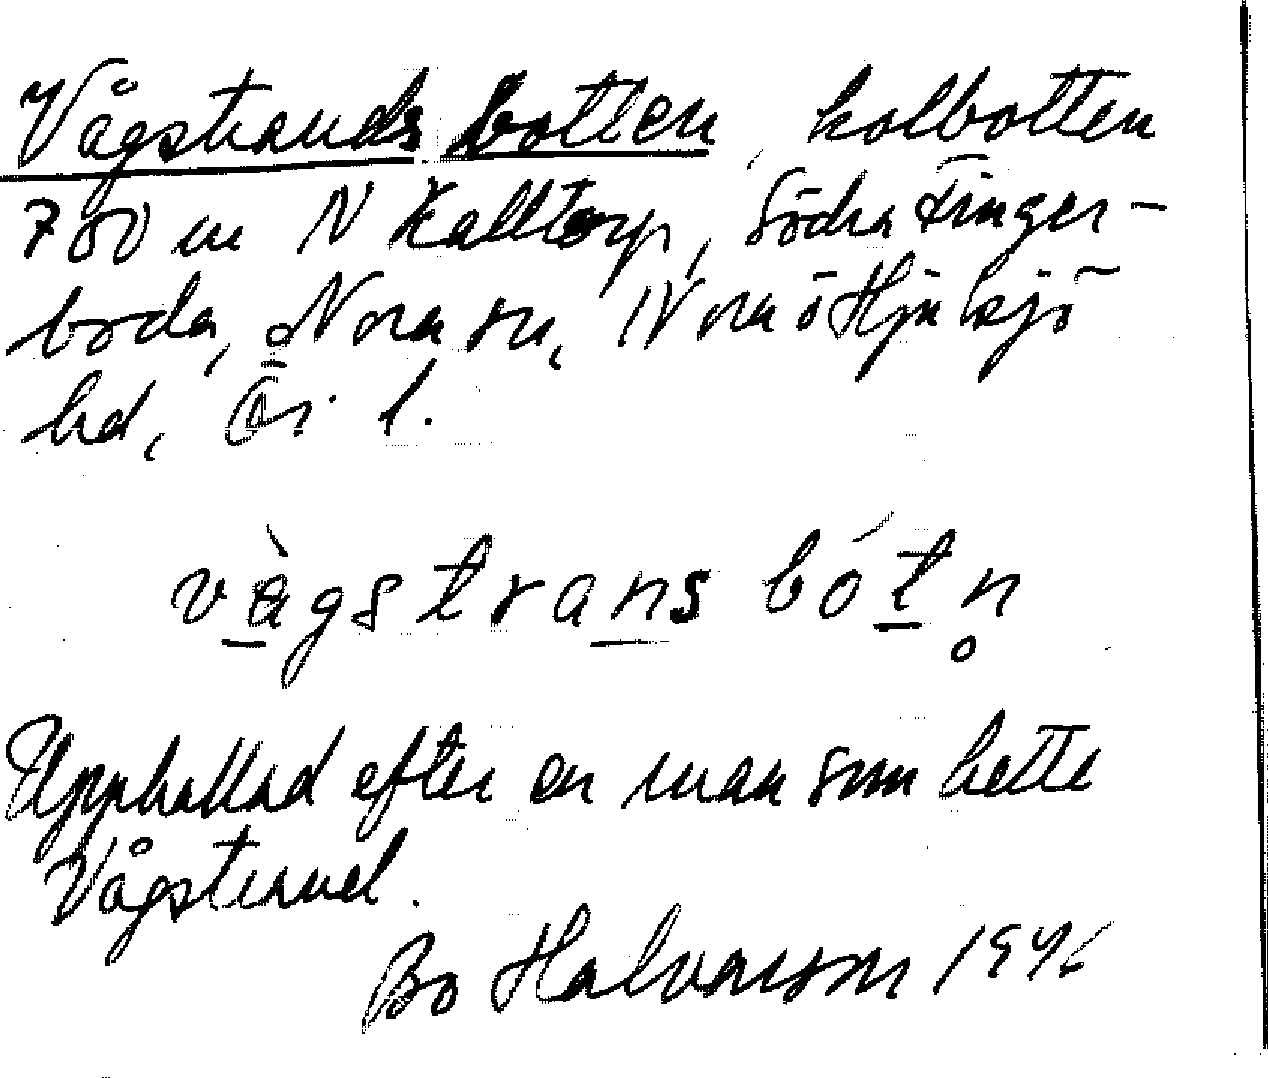 Vågstrands botten, kolbotten
780 m N Kalltorp, Södra Finger-
boda, Nora sn, Nora o Hjulsjö
hd, Ör. l.
vàgstrans bótn̥
Uppkallad efter en man som hette
Vågstrand.
Bo Halvarson 1946